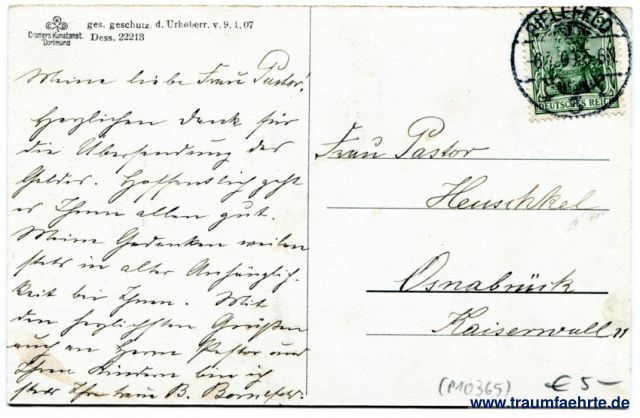 Cramers Kunstanst.
Dortmund
ges. geschutz. d. Urheberr. v. 9. 1. 07
Dess. 22213
BIELEFELD
DEUTSCHES REICH
Meine liebe Frau Pastor!
Herzlichen Dank für
die Übersendung des
Geldes. Hoffentlich geht
es Ihnen allen gut.
Meine Gedanken weilen
stets in alter Anhänglich-
keit bei Ihnen. Mit
den herzlichsten Grüßen
auch an Herrn Pastor und
Ihren Kindern bin ich
stets Ihre treue B.
Frau Pastor
Heuschkel
Osnabrück
Kaiserwall
(P10365)
€ 5-
www.traumfaehrte.de